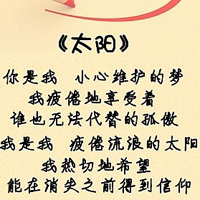 《太阳》
你是我 小心维护的梦
我疲倦地享受着
谁也无法代替的孤傲
我是我 疲倦流浪的太阳
我热切地希望
能在消失之前得到信仰